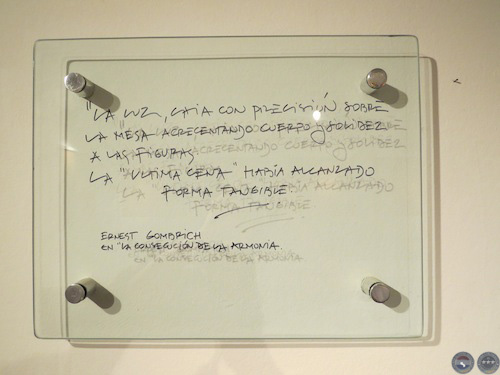 "LA LUZ, CAIA CON PRECISIÓN SOBRE
LA MESA ACRECENTANDO CUERPO y SOLIDEZ
A LAS FIGURAS
LA "ULTIMA CENA" HABÍA ALCANZADO
FORMA TANGIBLE.
ERNEST GOMBRICH
EN "LA CONSECUCIÓN DE LA ARMONIA.